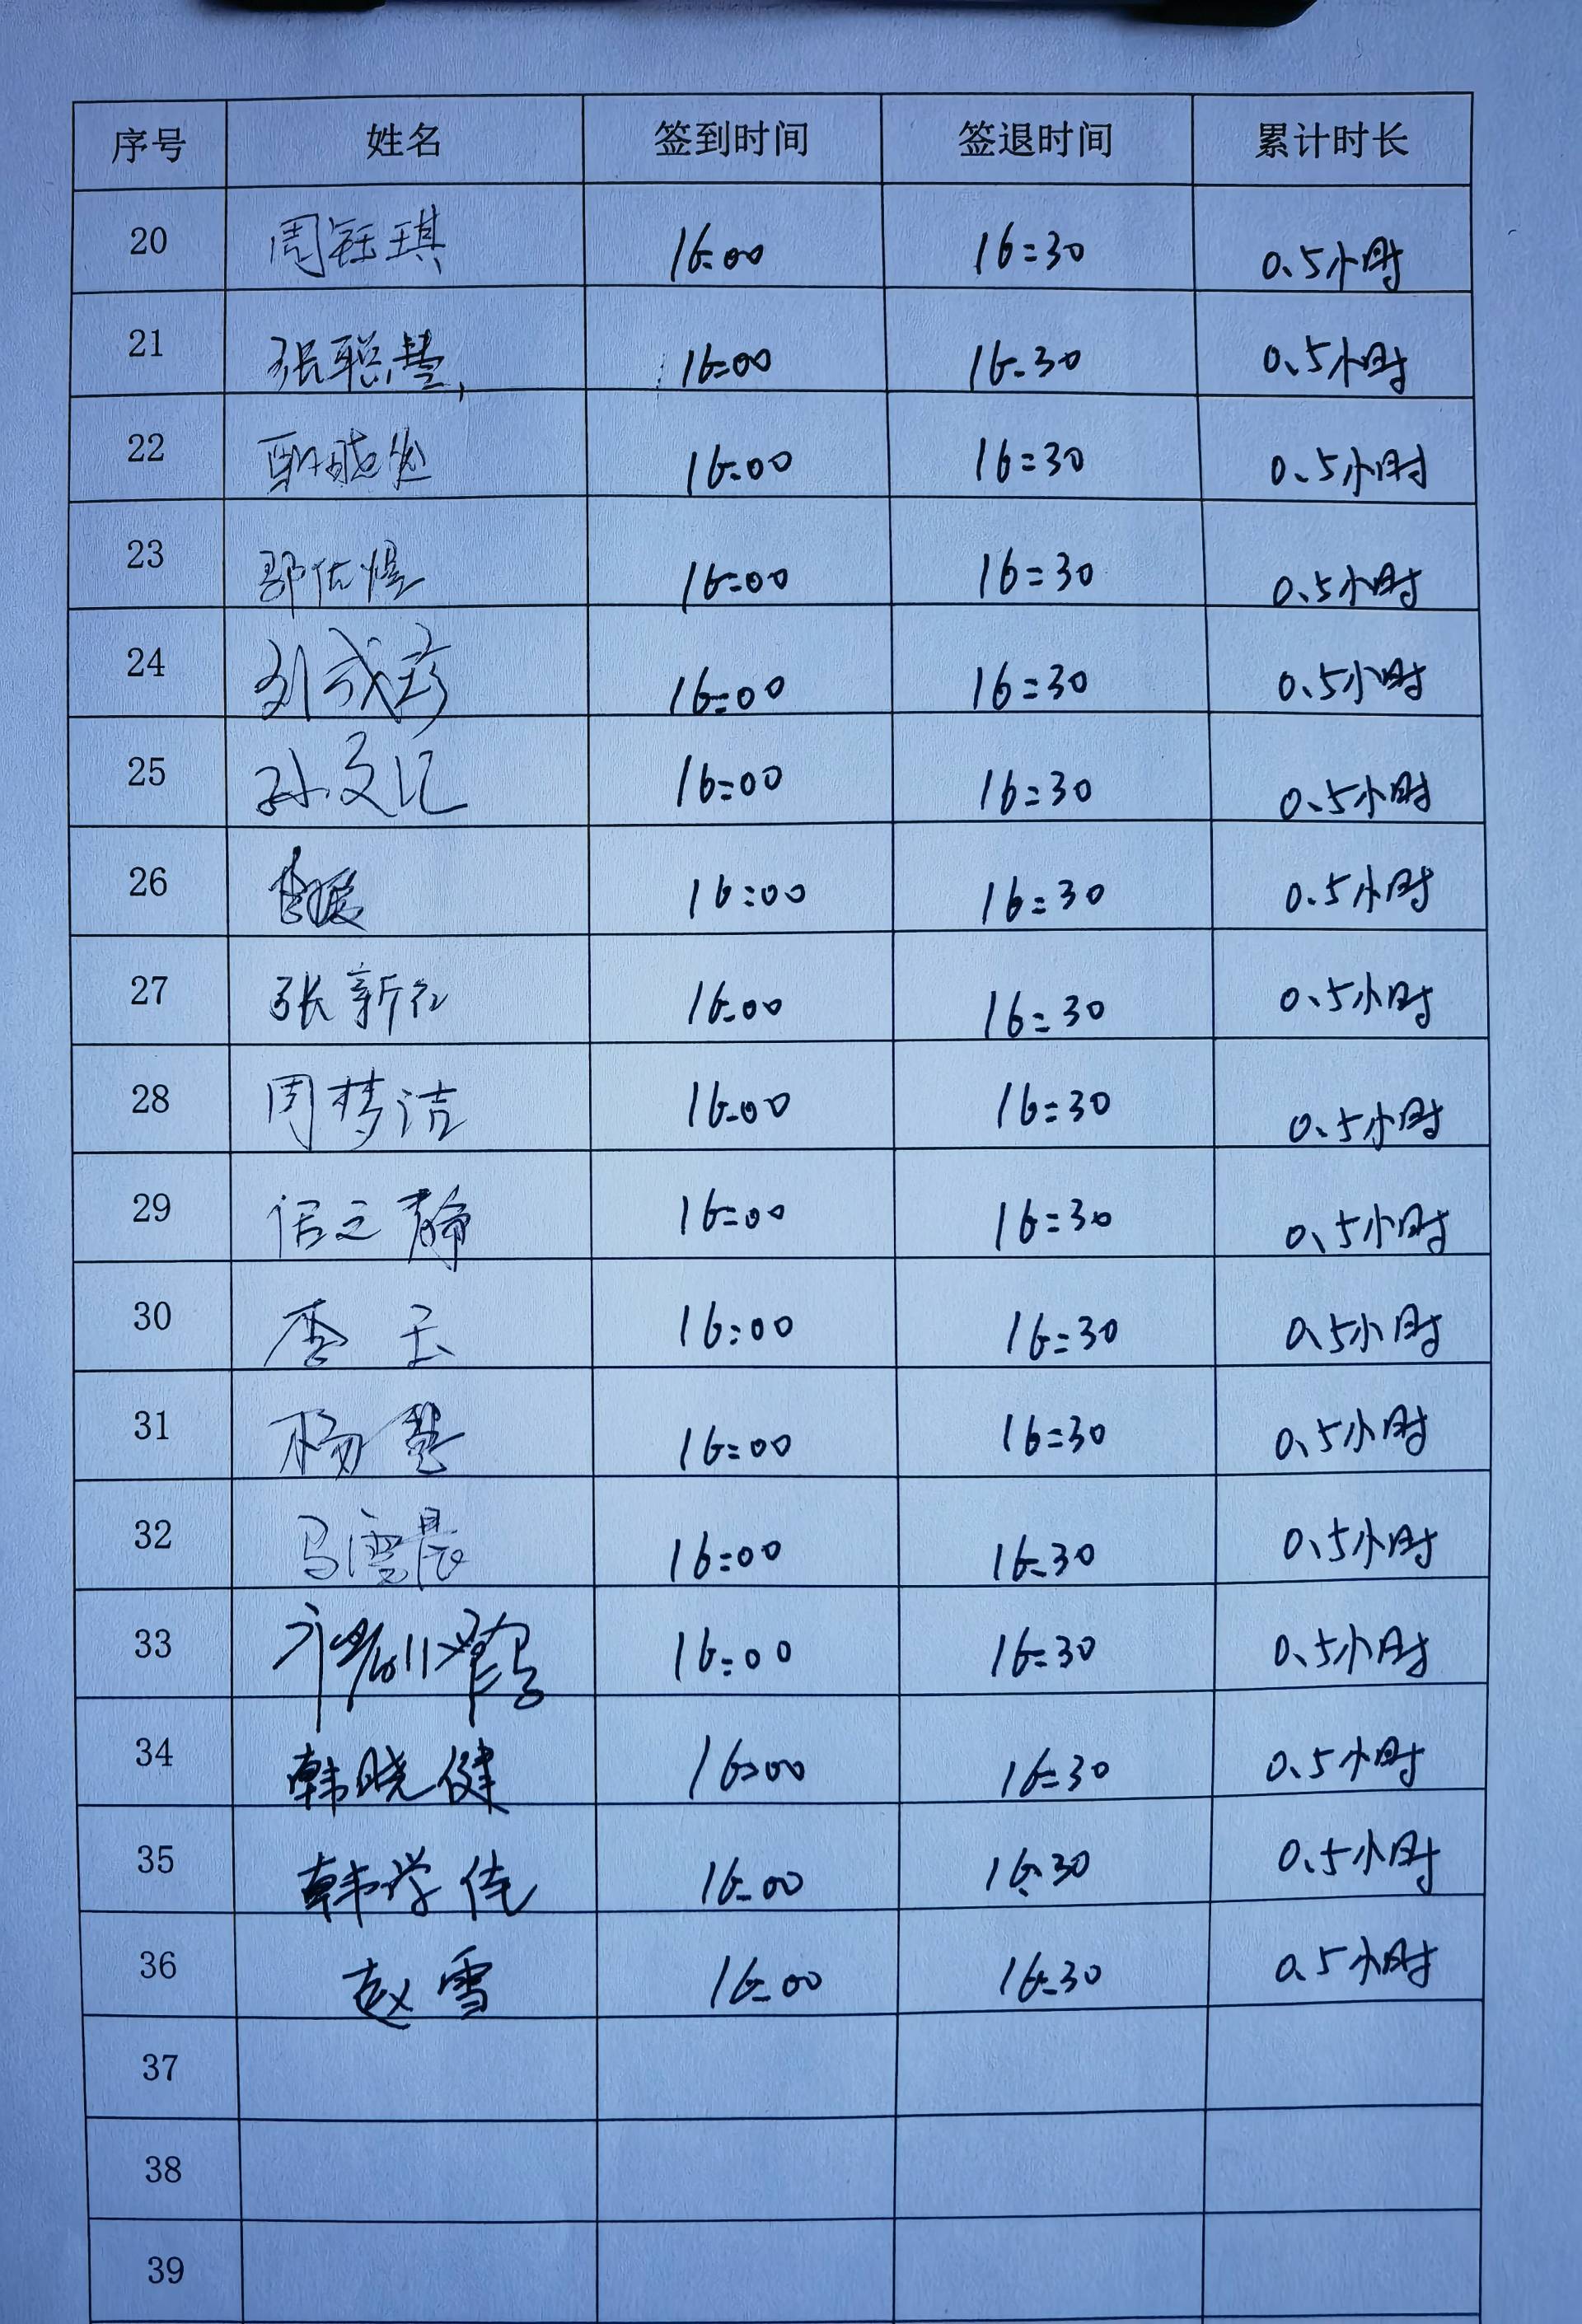 序号 姓名 签到时间 签退时间 累计时长
20 周钰琪 16:00 16:30 0.5小时
21 张聪慧 16:00 16:30 0.5小时
22 16:00 16:30 0.5小时
23 16:00 16:30 0.5小时
24 刘成 16:00 16:30 0.5小时
25 孙文 16:00 16:30 0.5小时
26 16:00 16:30 0.5小时
27 张新 16:00 16:30 0.5小时
28 周梦洁 16:00 16:30 0.5小时
29 静 16:00 16:30 0.5小时
30 16:00 16:30 0.5小时
31 杨慧 16:00 16:30 0.5小时
32 马雪晨 16:00 16:30 0.5小时
33 16:00 16:30 0.5小时
34 韩晓健 16:00 16:30 0.5小时
35 韩学佳 16:00 16:30 0.5小时
36 赵雪 16:00 16:30 0.5小时
37
38
39